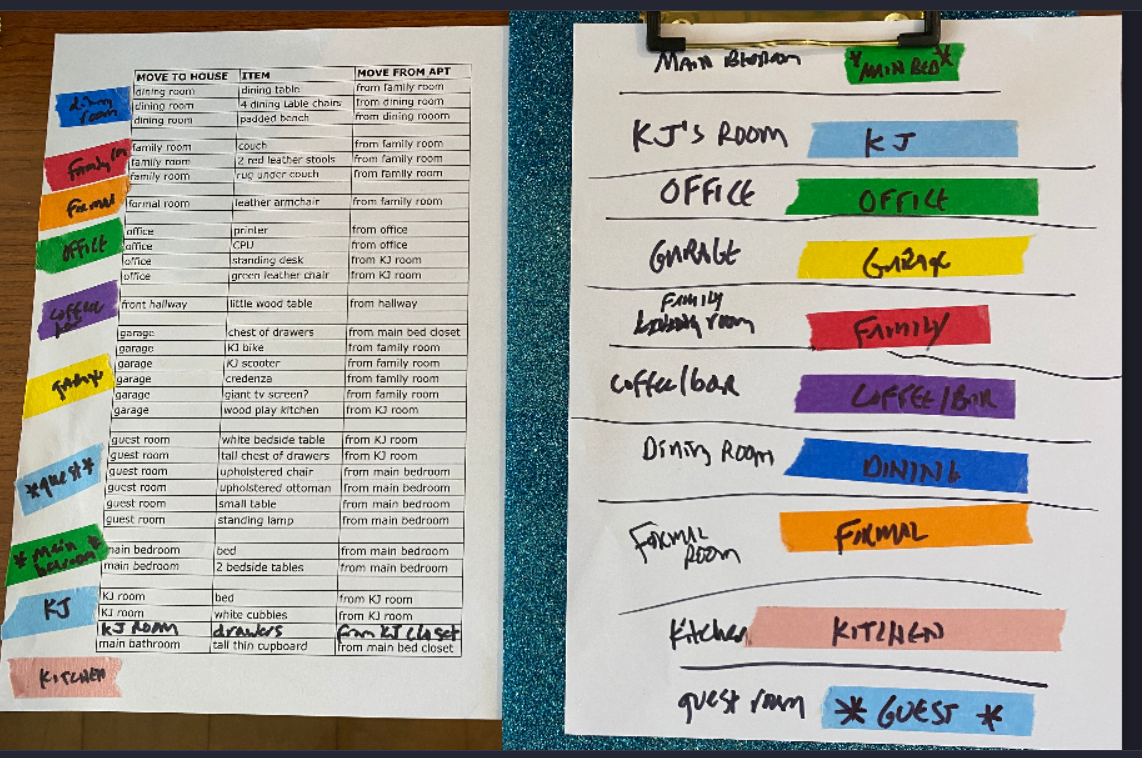 MOVE TO HOUSE ITEM MOVE FROM APT
dining room dining room dining table from family room
dining room 4 dining table chairs from dining room
dining room padded bench from dining rooom
Family rm family room couch from family room
family room 2 red leather stools from family room
family room rug under couch from family room
Formal formal room leather armchair from family room
office printer from office
OFFICE office CPU from office
office standing desk from KJ room
office green leather chair from KJ room
coffee bar front hallway little wood table from hallway
garage chest of drawers from main bed closet
garage KJ bike from family room
garage KJ scooter from family room
garage garage credenza from family room
garage giant tv screen? from family room
garage wood play kitchen from KJ room
guest room white bedside table from KJ room
guest room tall chest of drawers from KJ room
*guest* guest room upholstered chair from main bedroom
guest room upholstered ottoman from main bedroom
guest room small table from main bedroom
guest room standing lamp from main bedroom
* Main bedroom * main bedroom bed from main bedroom
main bedroom 2 bedside tables from main bedroom
KJ KJ room bed from KJ room
KJ room white cubbles from KJ room
KJ ROOM drawers from KJ closet
main bathroom tall thin cupboard from main bed closet
KITCHEN
MAIN BEDROOM *MAIN BED*
KJ'S ROOM KJ
OFFICE OFFICE
GARAGE GARAGE
Family
room FAMILY
coffee/bar COFFEE/BAR
Dining Room DINING
FORMAL ROOM FORMAL
Kitchen KITCHEN
guest room * GUEST *